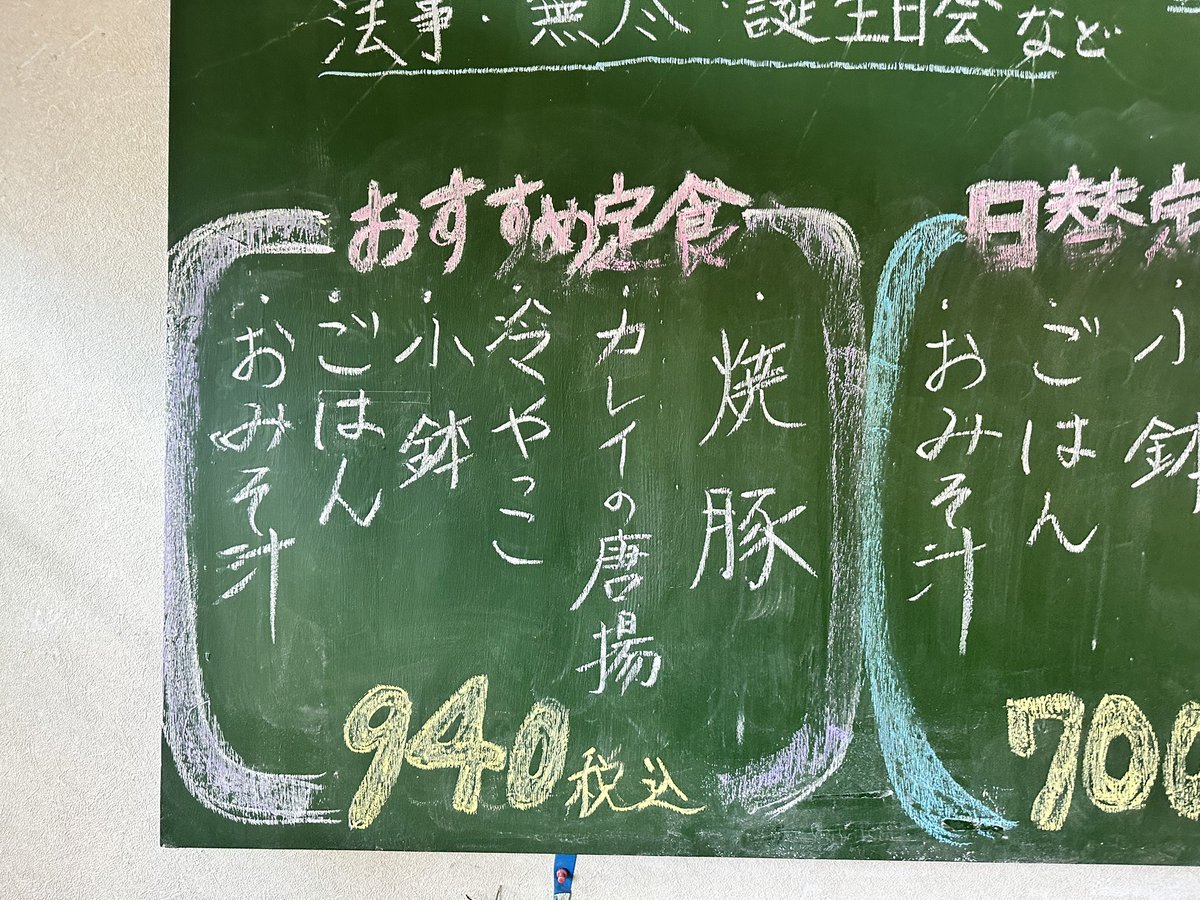 法事・無尽・誕生日会など
おすすめ定食
・焼豚
・カレイの唐揚
・冷やっこ
・小鉢
・ごはん
・おみそ汁
940税込
日替定
・小鉢
・ごはん
・おみそ汁
700